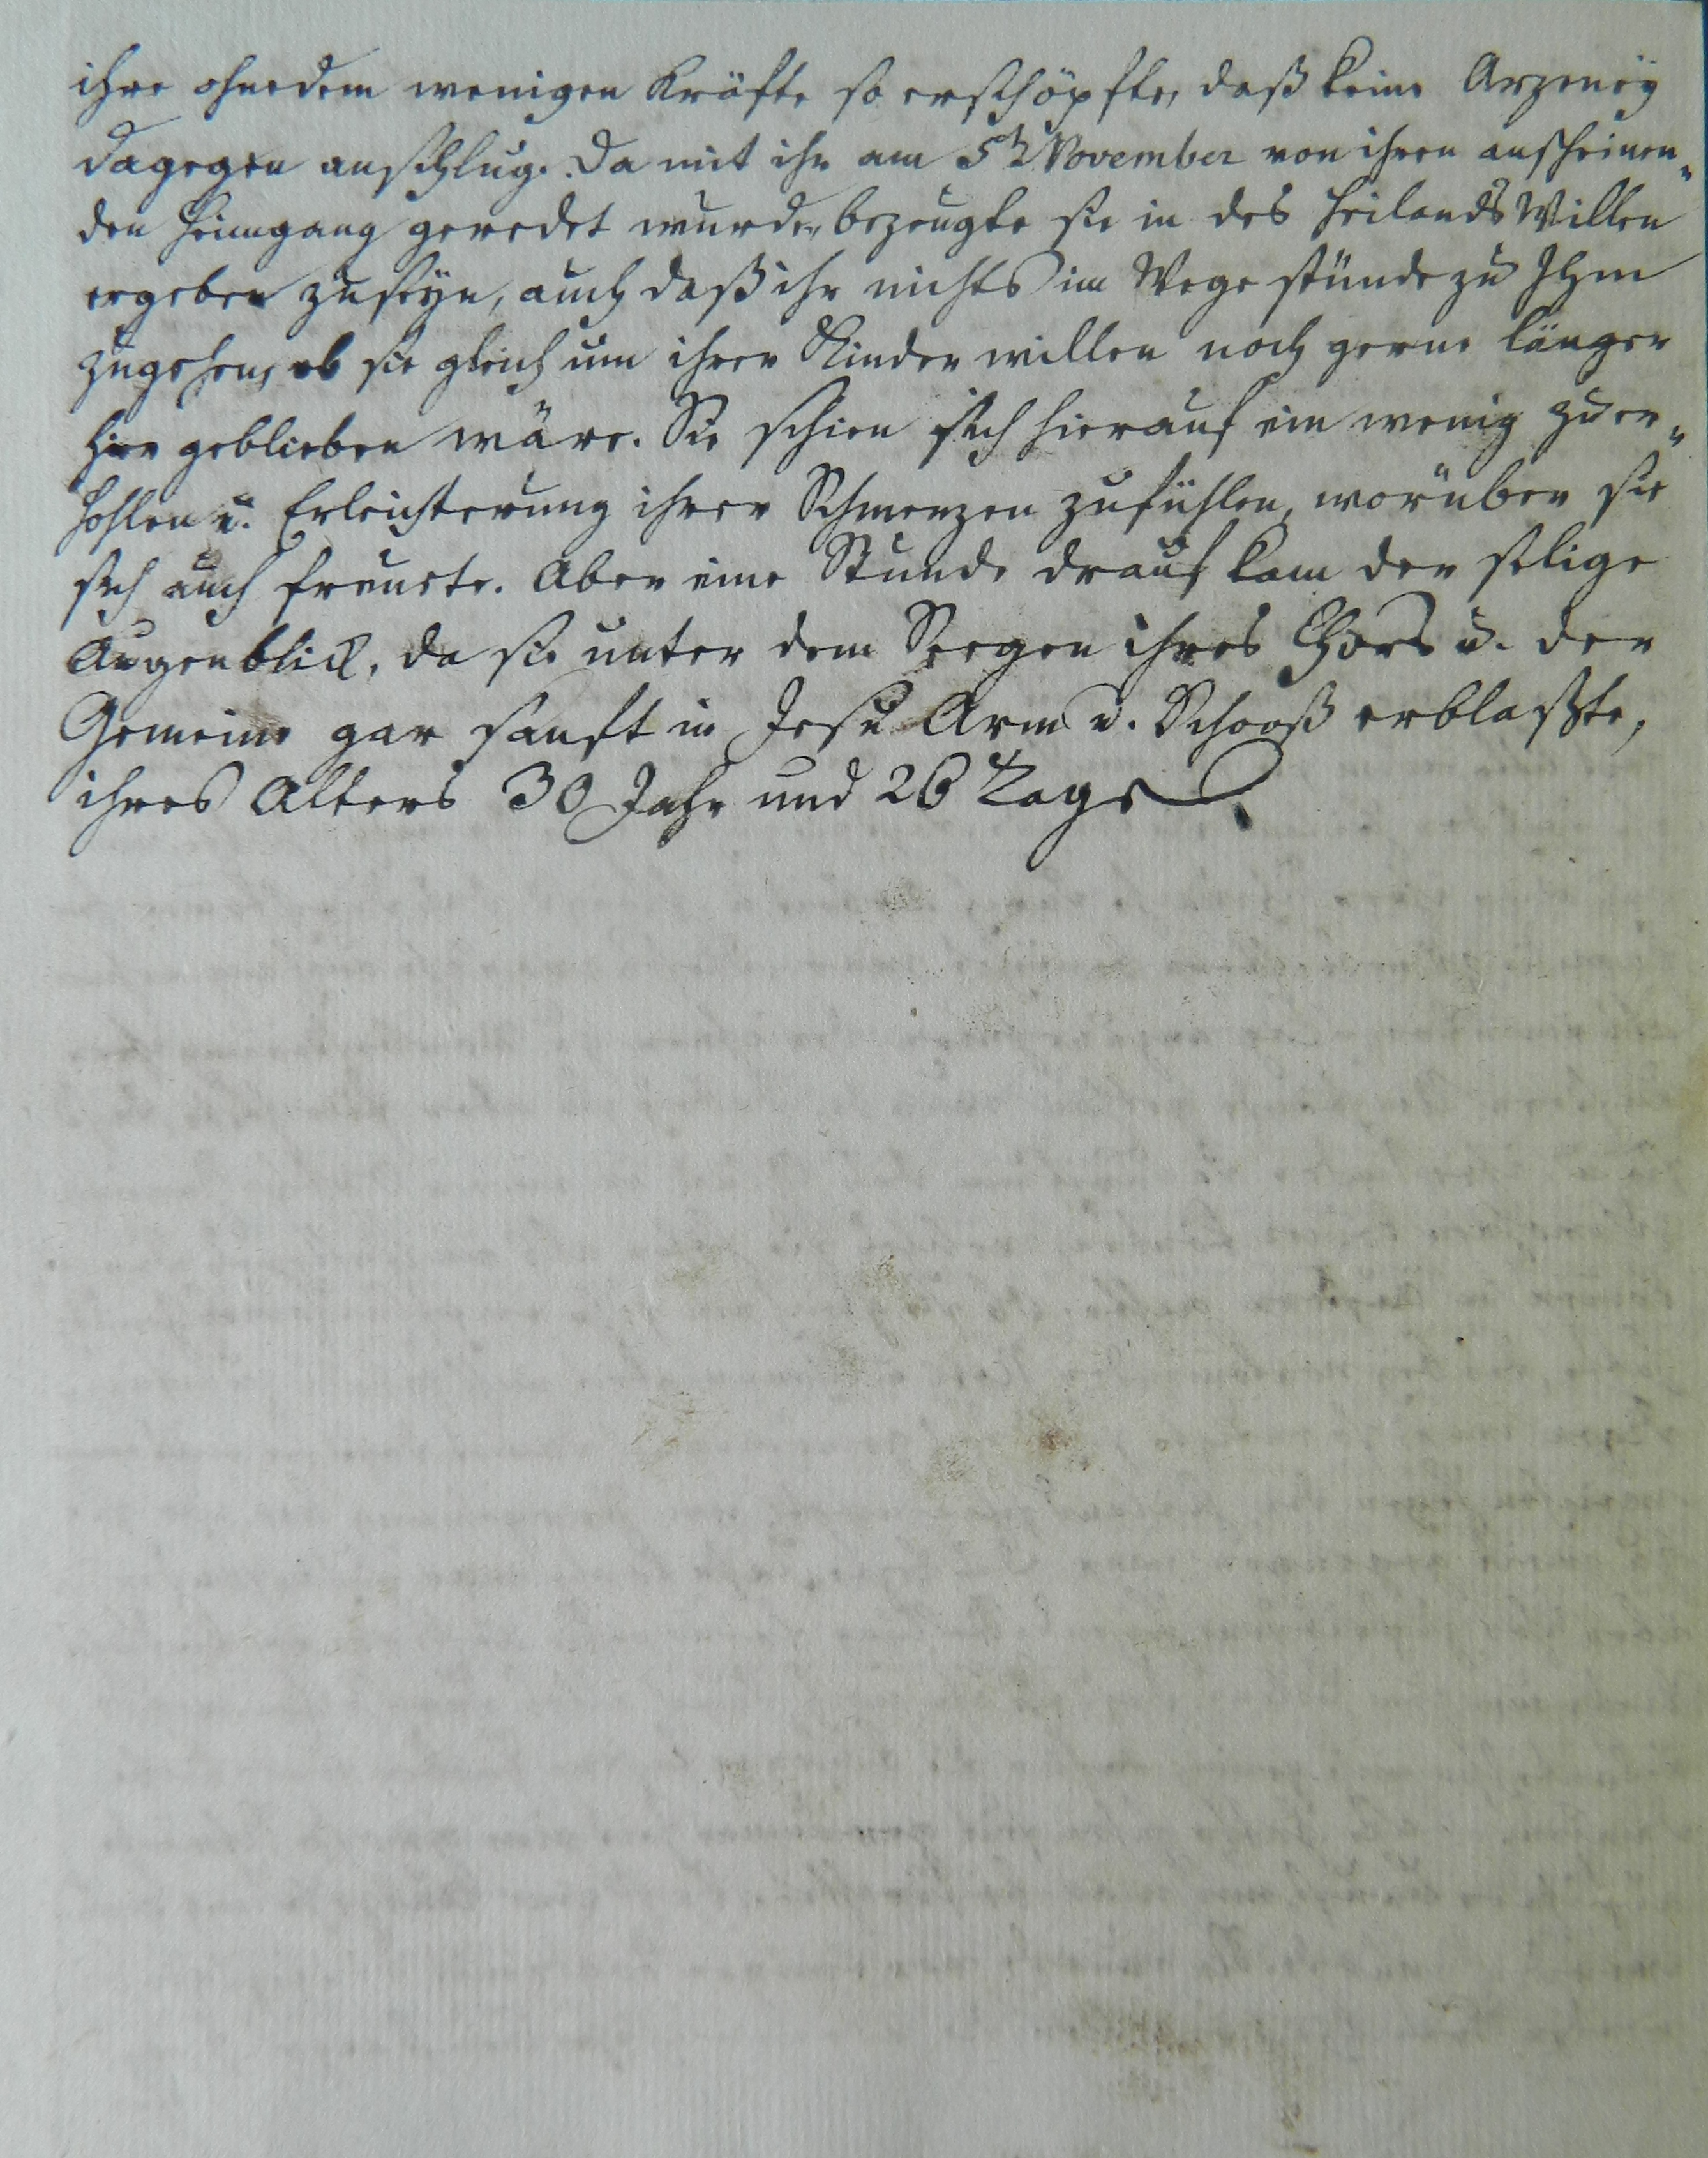 ihre ohnedem wenigen Kräfte so erschöpfte, daß keine Arzeneÿ
dagegen anschlug. Da mit ihr am 5th November von ihren anscheinen„
den Heimgang geredet wurde, bezeugte sie in des Heilands Willen
ergeben zu seÿn, auch daß ihr nichts im Wege stünde zu Ihm
zugehen, ob sie gleich um ihrer Kinder willen noch gerne länger
hier geblieben wäre. Sie schien sich hierauf ein wenig zu er„
hohlen u. Erleichterung ihrer Schmerzen zufühlen, worüber sie
sich auch freuete. Aber eine Stunde drauf kam der selige
Augenblick, da sie unter dem Seegen ihres Chors u. der
Gemeine gar sanft in Jesu Arm u. Schooß erblaßte,
ihres Alters 30 Jahr und 26 Tage.